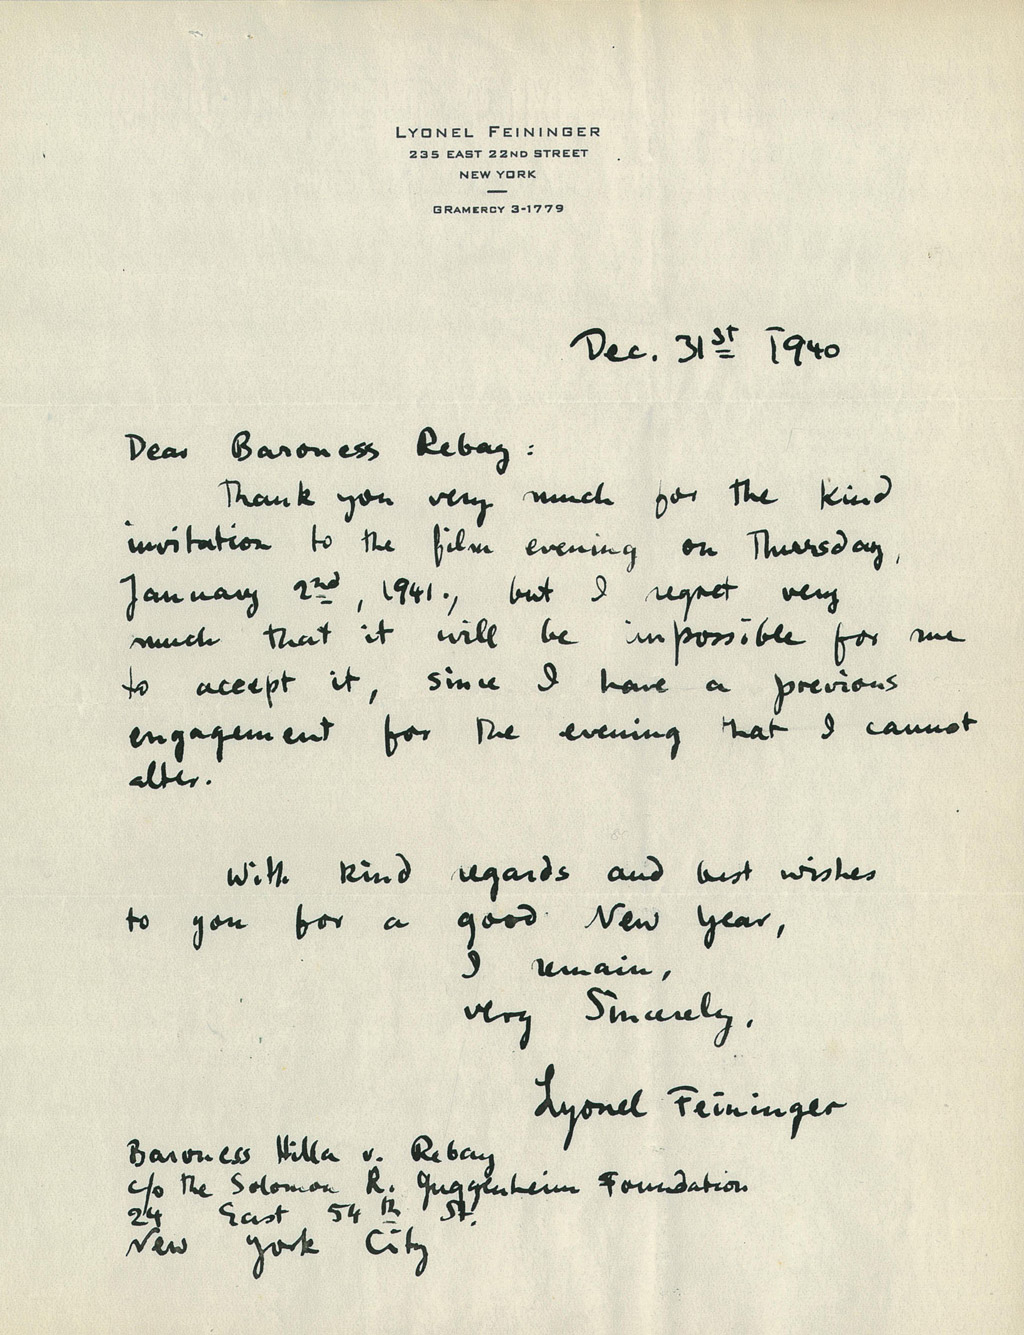 LYONEL FEININGER
235 EAST 22ND STREET
NEW YORK
GRAMERCY 3-1779
Dec. 31st 1940
Dear Baroness Rebay:
Thank you very much for the kind
invitation to the film evening on Thursday,
January 2nd, 1941., but I regret very
much that it will be impossible for me
to accept it, since I have a previous
engagement for the evening that I cannot
alter.
With kind regards and best wishes
to you for a good New Year,
I remain,
very Sincerely,
Lyonel Feininger
Baroness Hilla v. Rebay
c/o the Solomon R. Guggenheim Foundation
24 East 54th St.
New York City